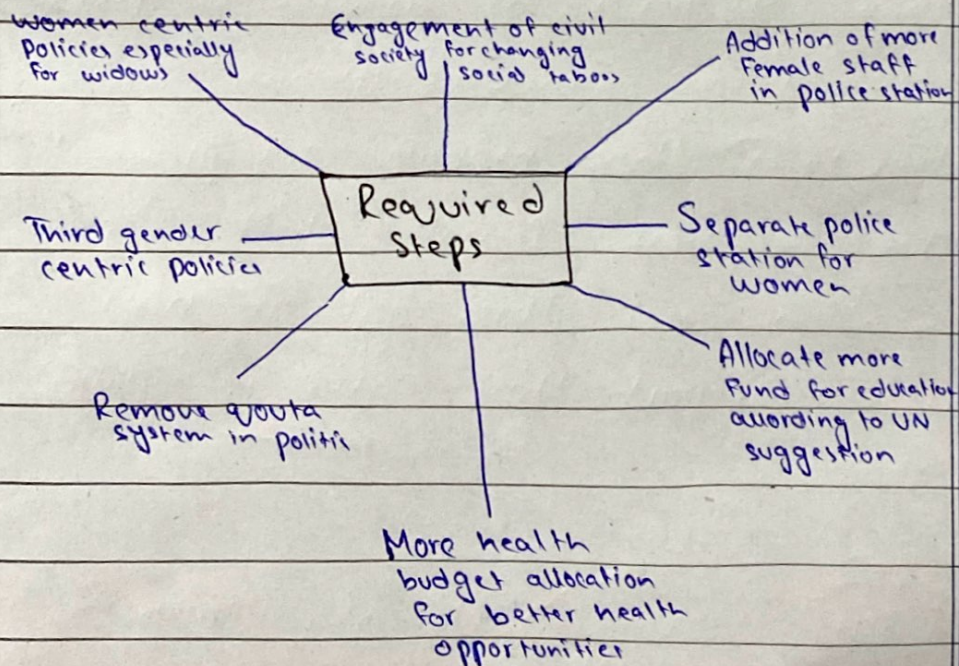 women centric
policies especially
for widows
Engagement of civil
society for changing
social taboos
Addition of more
Female staff
in police station
Required
Steps
Third gender
centric policies
Separate police
station for
women
Remove qouta
system in politic
Allocate more
Fund for education
according to UN
suggestion
More health
budget allocation
for better health
opportunities